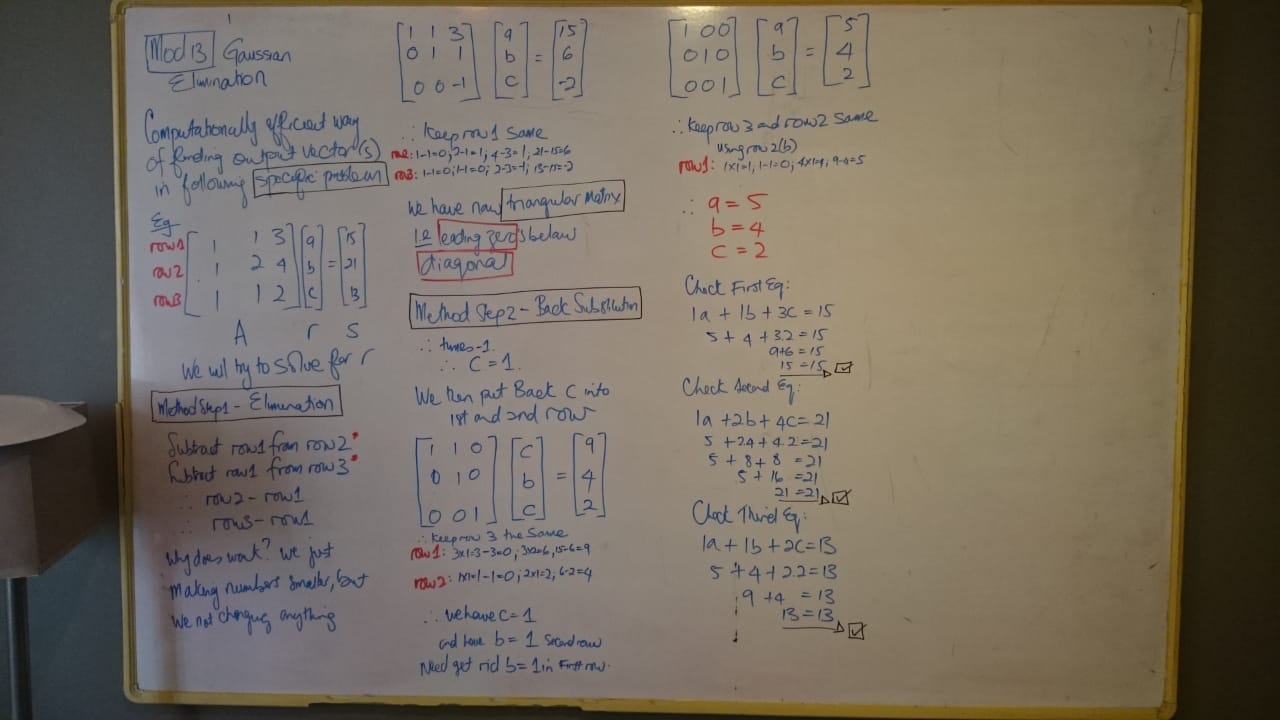 Mod 13 Gaussian
Elimination
Computationally efficient way
of finding output vector(s)
in following specific problem
Eg
row1 [1 1 3] [a] = [15]
row2 [1 2 4] [b] = [21]
row3 [1 1 2] [c] = [13]
A r s
We will try to solve for r
Method Step1 - Elimination
Subtract row1 from row2*
Subtract row1 from row3*
∴ row2 - row1
∴ row3 - row1
Why does work? We just
making numbers smaller, but
we not changing anything
[1 1 3] [a] = [15]
[0 1 1] [b] = [6]
[0 0 -1] [c] = [-2]
∴ Keep row 1 same
row2: 1-1=0; 2-1=1; 4-3=1; 21-15=6
row3: 1-1=0; 1-1=0; 2-3=-1; 13-15=-2
We have now triangular matrix
ie leading zero's below
diagonal
Method Step 2 - Back Substitution
∴ times -1
∴ C = 1.
We then put Back C into
1st and 2nd row
[1 1 0] [c] = [9]
[0 1 0] [b] = [4]
[0 0 1] [c] = [2]
∴ Keep row 3 the same
row1: 3x1=3-3=0; 3x2=6, 15-6=9
row2: 1x1=1-1=0; 2x1=2; 6-2=4
∴ we have c = 1
and have b = 1 second row
Need get rid b = 1 in First row.
[1 0 0] [a] = [5]
[0 1 0] [b] = [4]
[0 0 1] [c] = [2]
∴ Keep row 3 and row 2 same
using row 2(b)
row1: 1x1=1, 1-1=0; 4x1=4; 9-4=5
∴ a = 5
b = 4
c = 2
Check First Eq:
1a + 1b + 3c = 15
5 + 4 + 3.2 = 15
9+6 = 15
15 = 15
Check Second Eq:
1a + 2b + 4c = 21
5 + 2.4 + 4.2 = 21
5 + 8 + 8 = 21
5 + 16 = 21
21 = 21
Check Third Eq:
1a + 1b + 2c = 13
5 + 4 + 2.2 = 13
9 + 4 = 13
13 = 13